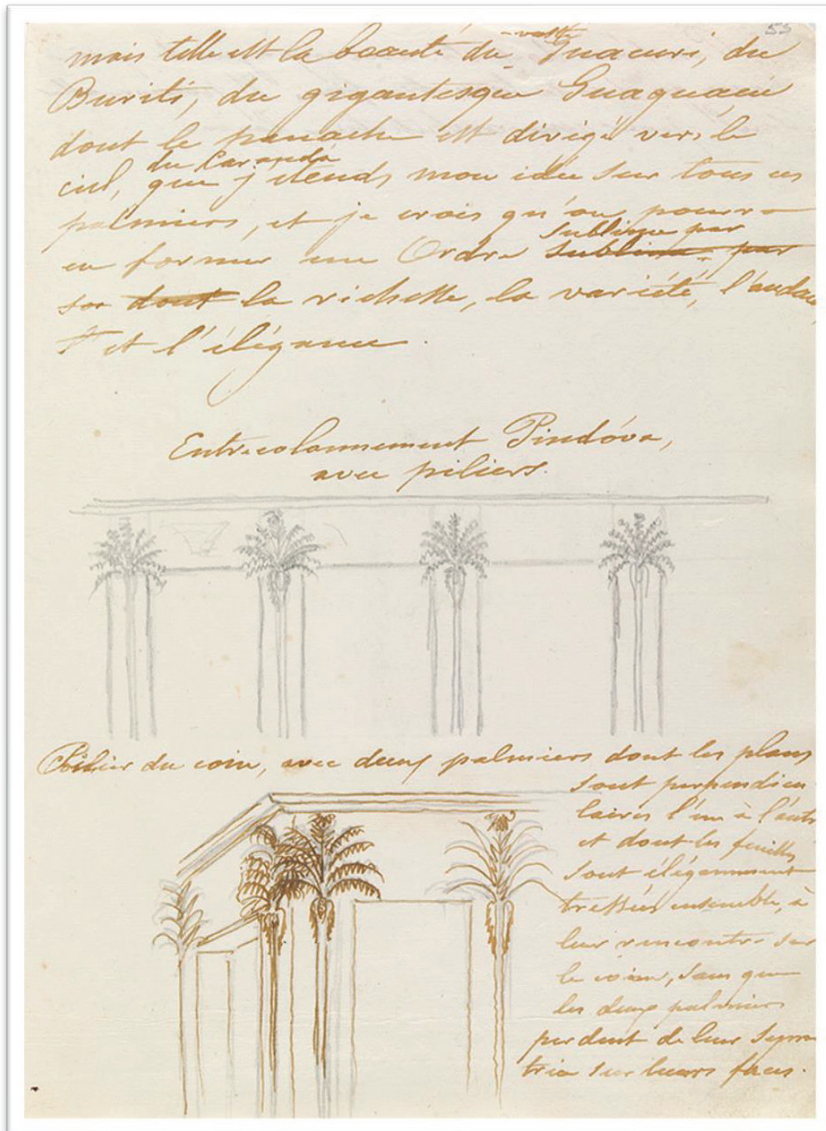 53
mais telle est la beauté du -vaste Guacuri, du
Buriti, du gigantesque Guaguaçu
dont le panache est dirigé vers le
ciel, du Carandá que j'étends mon idée sur tous ces
palmiers, et je crois qu'on pourra
en former un Ordre sublime par sublime par
dont la richesse, la variété, l'audace
et l'élégance.
Entrecolonnement Pindóva,
avec piliers.
Pilier du coin, avec deux palmiers dont les plans
sont perpendicu
laires l'un à l'autre
et dont les feuilles
sont élégamment
tressées ensemble, à
leur rencontre sur
le coin, sans que
les deux palmiers
perdent de leur symé
trie sur leurs faces.